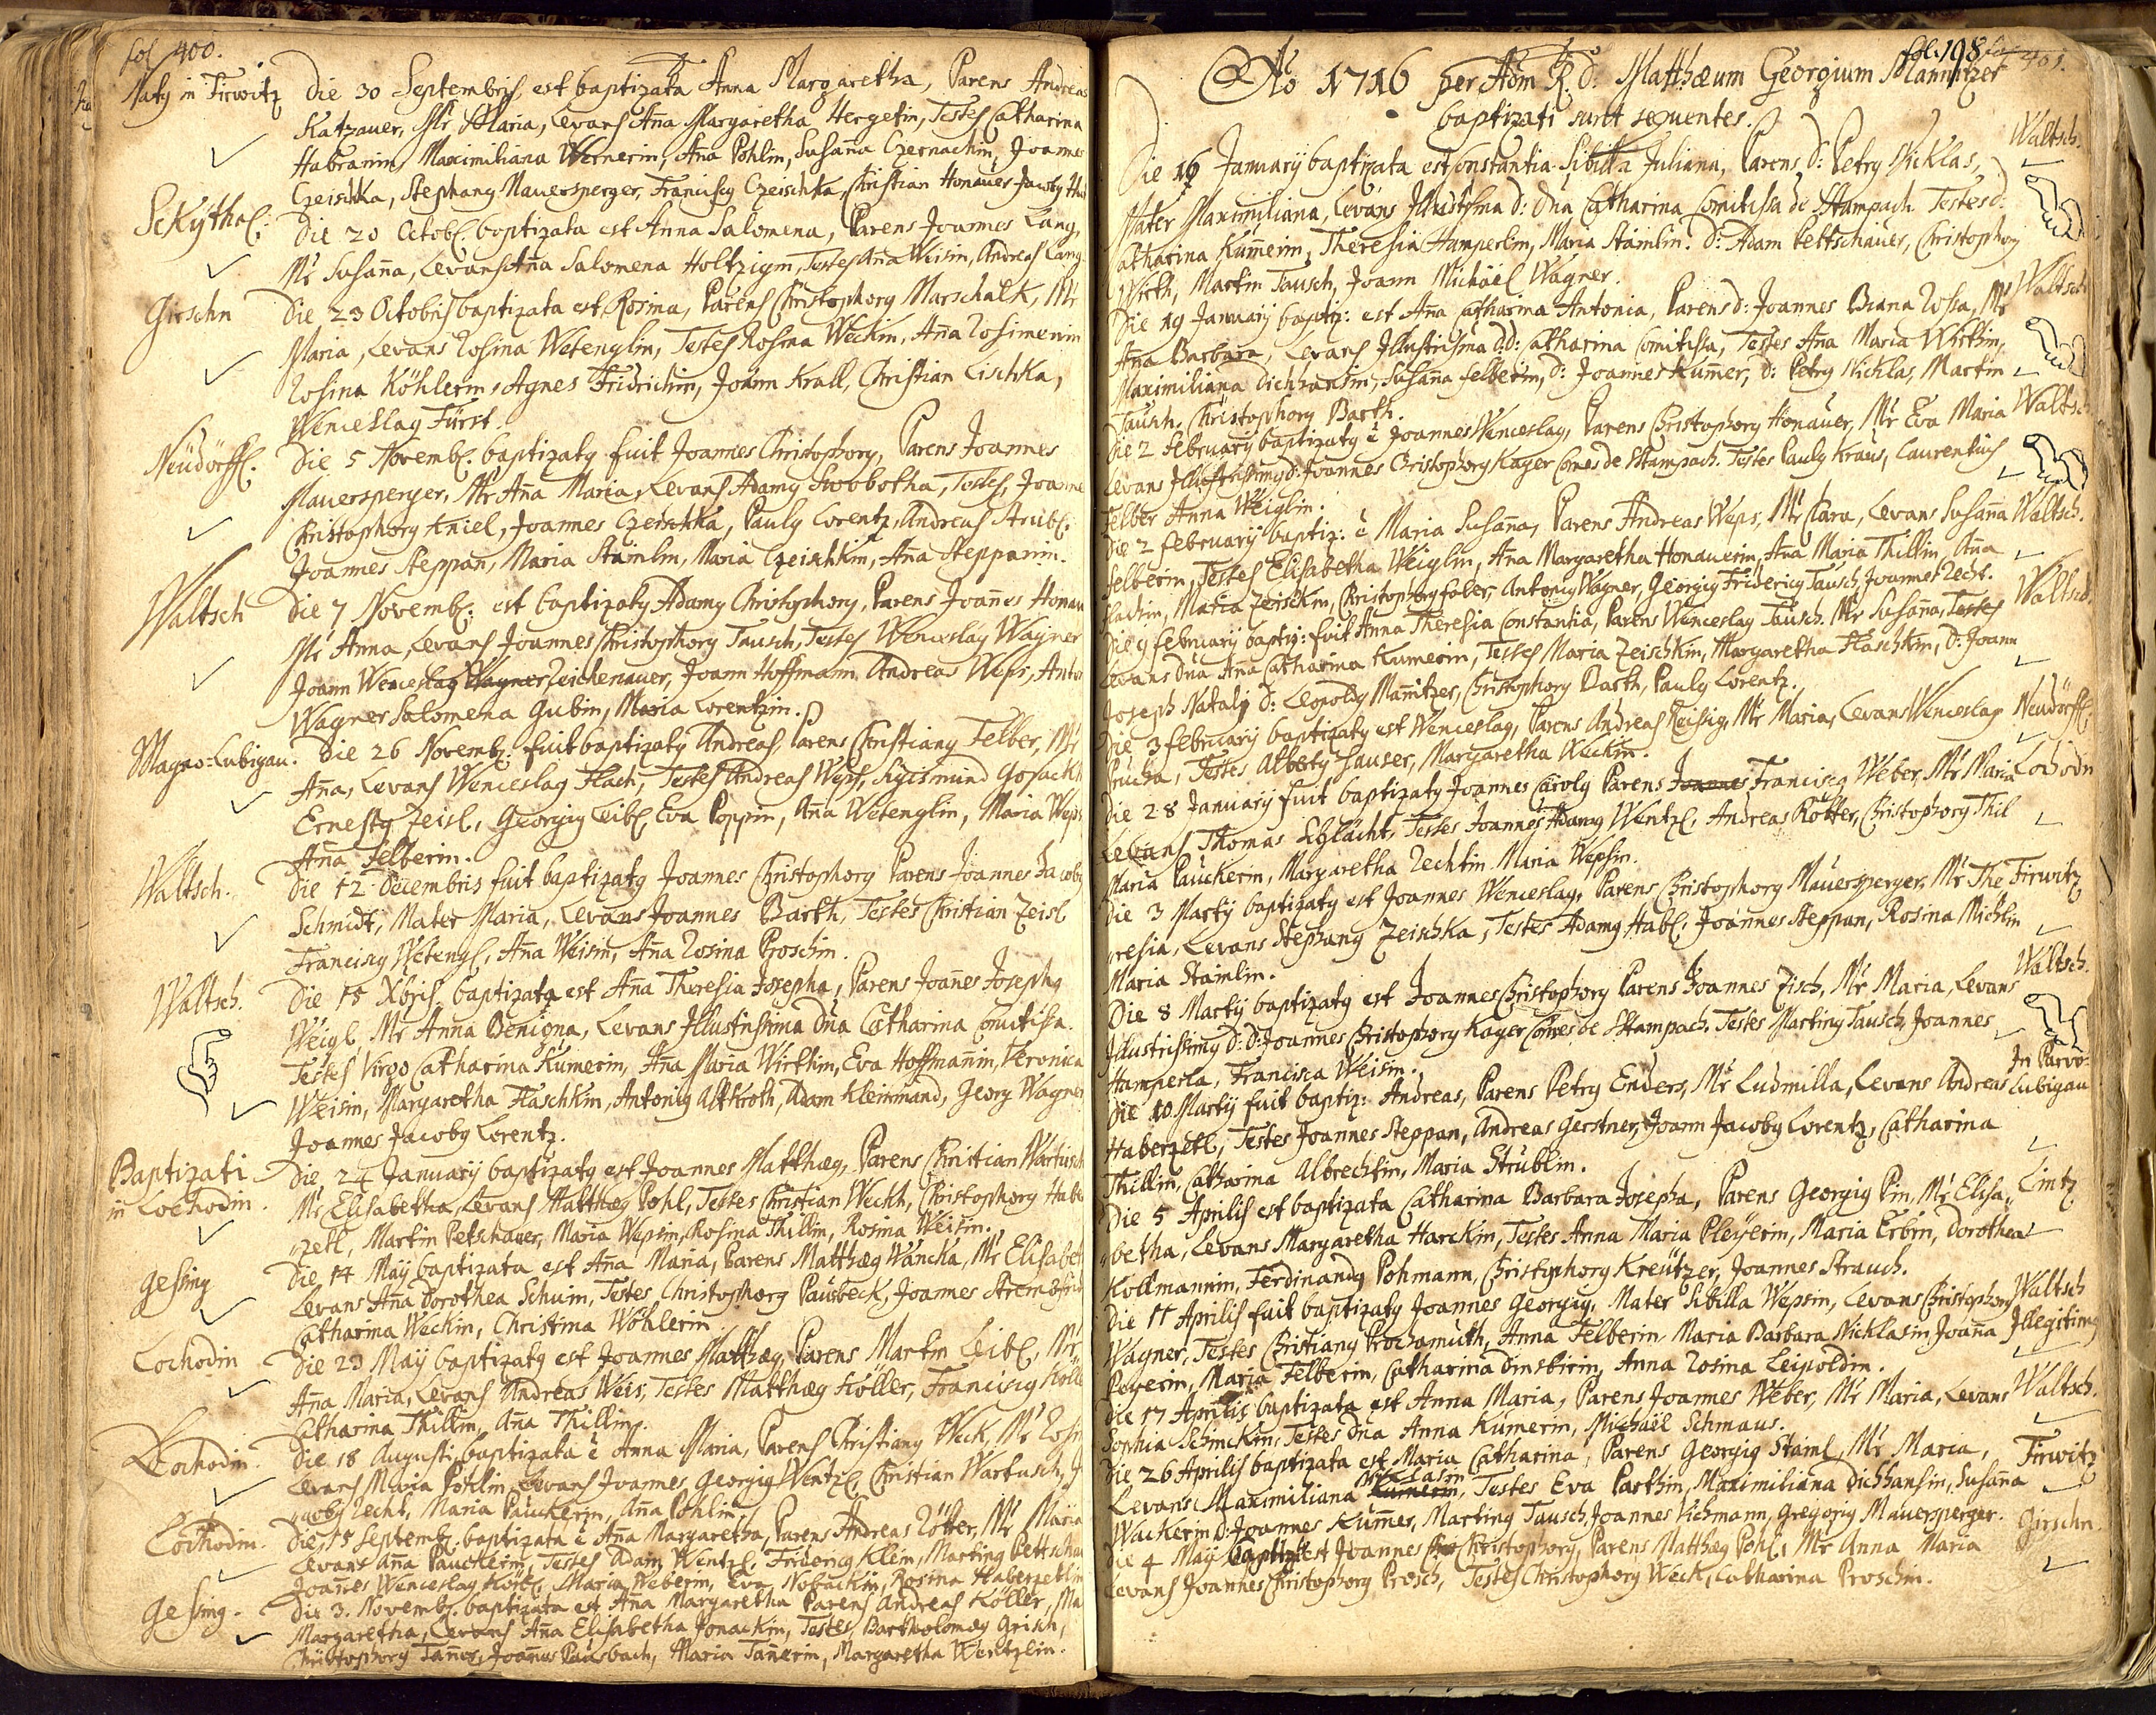 fol 400.
Natq in Firwitz Die 30 Septembris est baptizata Anna Margaretha, Parens Andreas
Katzauer, Mr Maria, Levans Aña Margaretha Hergetin, Testes Catharina
Habranin, Maximiliana Wernerin, Aña Pohlin, Susaña Czernachin, Joannes
Czeischka, Stephang Mauersperger, Franciscq Czeischka, Christian Honauer Jacobq
Sckÿthal:
Die 20 Octob: baptizata est Anna Salomena, Parens Joannes Lang,
Mr Susaña, Levans Aña Salomena Holtzigin, Testes Aña Weisin, Andreas Lang
Girschn Die 23 Octobris baptizata est Rosina, Parens Christophorq Marschalk, Mr
Maria, Levans Rosina Wetenglin, Testes Rosina Weckin, Aña
Rosina Köhlerin, Agnes Fridrichin, Joann Krall, Christian Lischka,
Wenceslaq Fürst.
Neüdörffl. Die 5 Novemb: baptizatq fuit Joannes Christophorq, Parens Joannes
Mauersperger, Mr Aña Maria, Levans Adamq Swobotha, Testes, Joanne
Christophorq Kniel, Joannes Czeischka, Paulq Lorentz, Andreas Strübl.
Joannes Steppan, Maria Stainlin, Maria Czeischkin, Aña Steppanin.
Waltsch Die 7 Novemb: est baptizatq Adamq Christophorq, Parens Joañes Honau
Mr Anna, Levans Joannes Christophorq Tausch, Testes Wenceslaq Wagner
Joann Wenceslaq Wagner Zeichenauer, Joann Hoffmann Andreas Weps, Anton
Wagner Salomena Gubin, Maria Lorentzin.
Magno-Lubigau. Die 26 Novemb: fuit baptizatq Andreas, Parens Christianq Felber, Mr
Aña, Levans Wenceslaq Flach, Testes Andreas Weps, Sigismund
Ernestq Zeisl, Georgiq Leibl, Eva Poppin, Aña Wetenglin, Maria Weps
Aña Felberin.
Waltsch. Die 12 Decembris fuit baptizatq Joannes Christophorq Parens Joannes Jacobq
Schmidt, Mater Maria, Levans Joannes Barth, Testes Christian Zeisl
Franciscq Wetengl, Aña Weisin, Aña Rosina Proschin.
Waltsch. Die 15 Xbris baptizata est Aña Theresia Josepha, Parens Joañes Josephq
Weigl, Mr Anna Benigna, Levans Illustrissima Dña Catharina Comitissa.
Testes Virgo Catharina Kumerin, Aña Maria Wirthin, Eva Hoffmañin, Veronica
Weisin, Margaretha Flaschkin, Antoniq Altkroth, Adam Kleinmand, Georg Wagner
Joannes Jacobq Lorentz.
Baptizati
in Lochodin.
Die 24 Januarÿ baptizatq est Joannes Matthæq, Parens Christian Wartusch
Mr Elisabetha, Levans Matthæq Pohl, Testes Christian Weckh, Christophorq Habe
„zetl, Martin Petschauer, Maria Wepsin, Rosina Thillin, Rosina Weisin.
Gessing Die 14 Maÿ baptizata est Aña Maria, Parens Matthæq Wancka, Mr Elisabet
Levans Aña Dorothea Schum, Testes, Christophorq Pausbeck, Joannes
Catharina Weckin, Christina Wöhlerin.
Lochodin Die 23 Maÿ baptizatq est Joannes Matthæq, Parens Martin Leibl, Mr
Aña Maria, Levans Andreas Weis, Testes Matthæq Köller, Franciscq Kölle
Catharina Thillin, Aña Thillin.
Lochodin. Die 18 Augusti, baptizata ẽ Anna Maria, Parens Christianq Weck, Mr Rosin
Levans Maria Pohlin, Levans Joannes, Georgiq Wentzl, Christian Wartusch, J
„acobq Zecht, Maria Pauckerin, Aña Pohlin.
Lochodin. Die 15 Septemb: baptizata ẽ Aña Margaretha, Parens Andreas Rötter, Mr Maria
Levans Aña Pauckerin, Testes Adam Wentzl, Fridericq Klein, Martinq Pettschau
Joañes Wenceslaq Körbl, Maria Weberin, Eva Nobackin, Rosina Haberzetlin
Gessing. Die 3. Novemb: baptizata est Aña Margaretha Parens Andreas Köller, Ma
Margaretha, Levans Aña Elisabetha Jonackin, Testes, Bartholomæq Grisch,
Christophorq Tañer, Joañes Pausbach, Maria Tañerin, Margaretha Wentzlin.
fol. 198 fol 401.
Aõ 1716 per Adm R. d: Matthæum Georgium Mannitzer
baptizati sunt sequentes.
Die 16 Januarÿ baptizata est Constantia Sibilla Juliana, Parens d: Petrq Nicklas, Waltsch.
Mater Maximiliana, Levans Illustrissima d: Dña Catharina Comitissa de Stampach. Testes d:
Catharina Kumerin, Theresia Hamperlin, Maria Stainlin. d: Adam Pettschauer, Christophorq
Wirth, Martin Tausch, Joann Michäel Wagner.
Die 19 Januarÿ baptiz: est Aña Catharina Antonia, Parens d: Joannes Biana Rossa, Mr Waltsch
Aña Barbara, Levans Illustrissima d.d: Catharina Comitissa, Testes Aña Maria Wirthin,
Maximiliana Dichhansin, Susaña Felberin, d: Joannes Kumer, d: Petrq Nicklas, Martin
Tausch. Christophorq Barth.
Die 2 Februarÿ baptizatq ẽ Joannes Wenceslaq, Parens Christophorq Honauer, Mr Eva Maria Waltsch.
Levans Illustrissimq d: Joannes Christophorq Kager Comes de Stampach. Testes Paulq Kraus, Laurentius
Felber Anna Weiglin.
Die 2 Februarÿ baptiz: ẽ Maria Susaña, Parens Andreas Weps, Mr Clara, Levans Susaña Waltsch.
Felberin, Testes Elisabetha Weiglin, Aña Margaretha Honauerin, Aña Maria Thillin, Aña
Flachin, Maria Zeisckin, Christophorq Faber, Antoniq Wagner, Georgiq Fridericq Tausch, Joannes Zecht.
Die 9 Februarÿ baptiz: fuit Anna Theresia Constantia, Parens Wenceslaq Tausch. Mr Susaña, Testes Waltsch.
Levans Dña Aña Catharina Kumerin, Testes Maria Zeischkin, Margaretha Flaschkin, D: Joann
Joseph Natalj d: Leopoldq Mañitzer, Christophorq Barth, Paulq Lorentz.
Die 3 Februarÿ baptizatq est Wenceslaq, Parens Andreas Reisig, Mr Maria, Levans Wenceslaq Neüdörffl.
Prucha, Testes Albertq Hauser, Margaretha Weckin.
Die 28 Januarÿ fuit baptizatq Joannes Carolq Parens Joannes Franciscq Weber, Mr Maria Lochodn
Levans Thomas Schlacht, Testes Joannes Adamq Wentzl, Andreas Rötter, Christophorq Thil
Maria Pauckerin, Margaretha Zechtin Maria Wepsin.
Die 3 Martÿ baptizatq est Joannes Wenceslaq, Parens Christophorq Mauersperger, Mr The Firwitz
„resia, Levans Stephanq Zeischka, Testes Adamq Habl, Joannes Steppan, Rosina Michlin
Maria Stainlin.
Die 8 Martÿ baptizatq est Joannes Christophorq Parens Joannes Zisch, Mr Maria, Levans Waltsch.
Illustrissimq d: d: Joannes Christophorq Kager Comes de Stampach, Testes Martinq Tausch, Joannes
Hamperla, Francisca Weisin.
Die 10 Martÿ fuit baptiz: Andreas, Parens Petrq Enders, Mr Ludmilla, Levans Andreas In Parvo-Lubigau
Haberzetl, Testes Joannes Steppan, Andreas Gerstner, Joann Jacobq Lorentz, Catharina
Thillin, Catharina Albrechtin, Maria Strüblin.
Die 5 Aprilis est baptizata Catharina Barbara Josepha, Parens Georgiq Pin, Mr Elisa„ Lintz
„betha, Levans Margaretha Harckin, Testes Anna Maria Pleÿerin, Maria Erbin, Dorothea
Kollmannin, Ferdinandq Pohmann, Christophorq Kreützer, Joannes Strauch.
Die 11 Aprilis fuit baptizatq Joannes Georgiq, Mater Sibilla Wepsin, Levans Christophorq Waltsch
Wagner, Testes Christianq Prochamuth, Anna Felberin, Maria Barbara Nicklasin, Joaña Illegitimq
Peyerin, Maria Felberin, Catharina Dinstbirin, Anna Rosina Leipoldin.
Die 17 Aprilis baptizata est Anna Maria, Parens Joannes Weber, Mr Maria, Levans Waltsch.
Sophia Schmckin, Testes Dña Anna Kumerin, Michäel Schmaus.
Die 26 Aprilis baptizata est Maria Catharina, Parens Georgiq Stainl, Mr Maria, Firwitz
Nicklasin
Levans Maximiliana Kumerin, Testes Eva Parthin, Maximiliana Dichhansin, Susaña
Wackerin d: Joannes Kumer, Martinq Tausch, Joannes Vichmann, Gregoriq Mauersperger.
Die 4 Maÿ baptiz: est Joannes Christophorq, Parens Matthæq Pohl, Mr Anna Maria Girschn.
Levans Joannes Christophorq Prosch, Testes Christophorq Weck, Catharina Proschin.